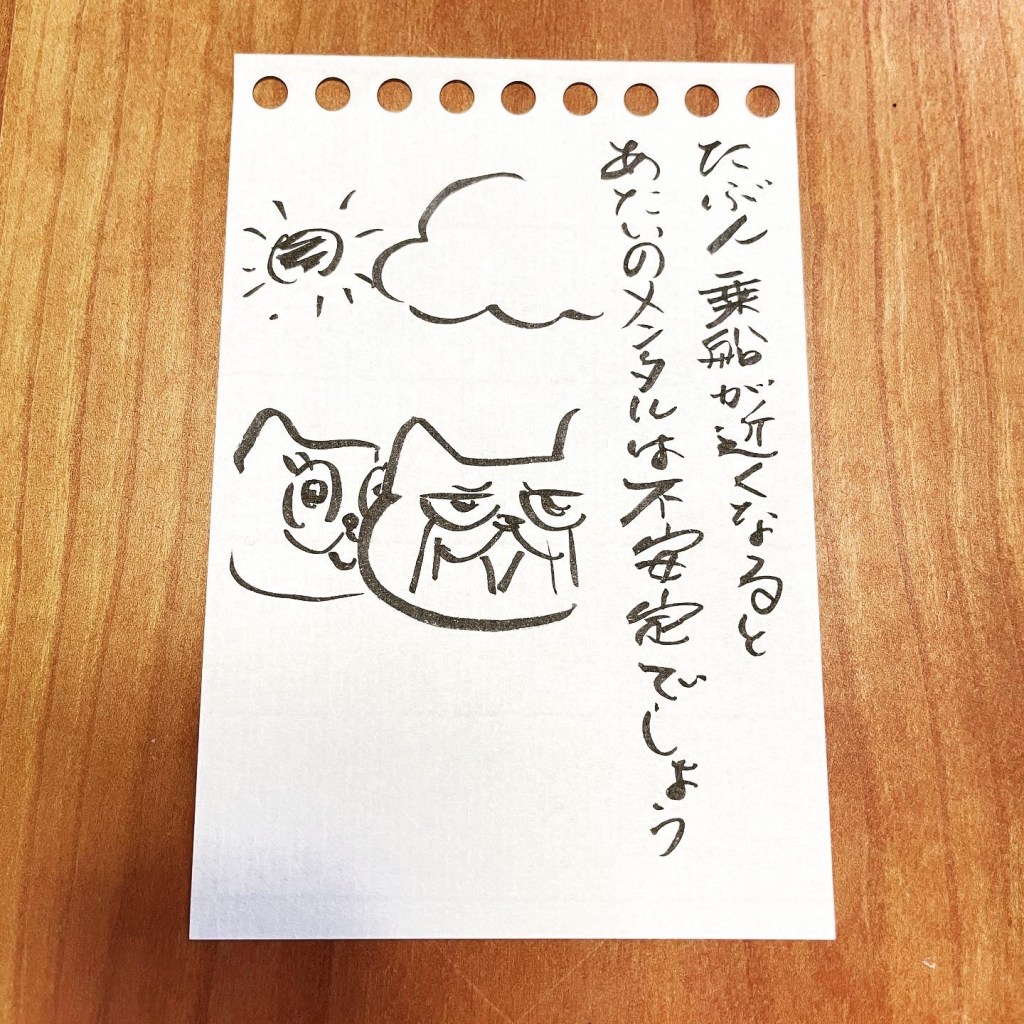 たぶん乗船が近くなると
あたいのメンタルは不安定でしょう